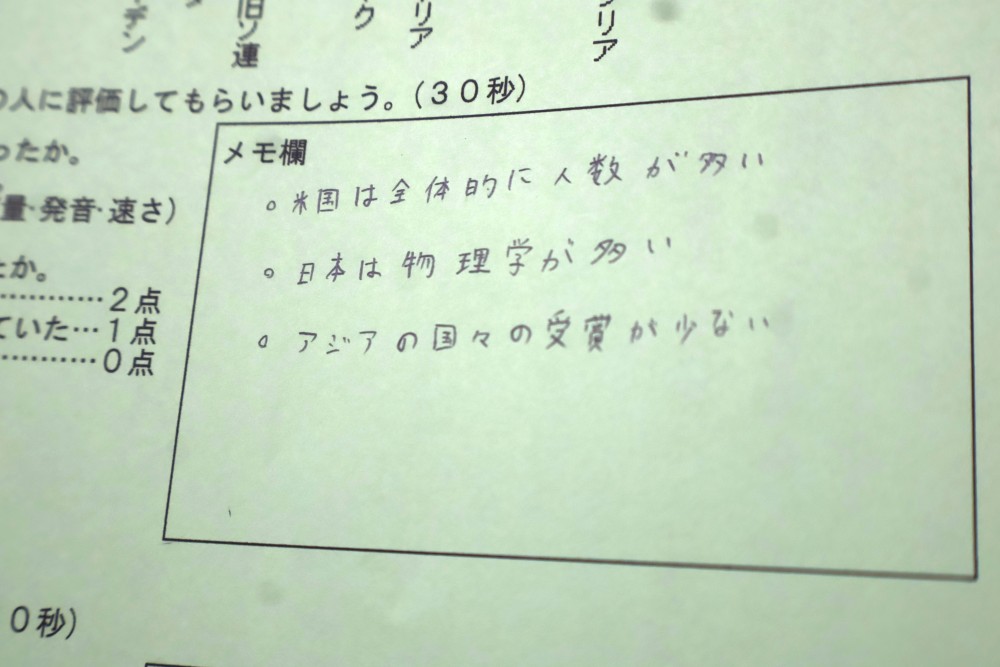 デン
旧ソ連
ク
リア
リア
の人に評価してもらいましょう。(30秒)
ったか。
量・発音・速さ)
たか。
…………2点
ていた…1点
…………0点
メモ欄
。米国は全体的に人数が多い
。日本は物理学が多い
。アジアの国々の受賞が少ない
0秒)